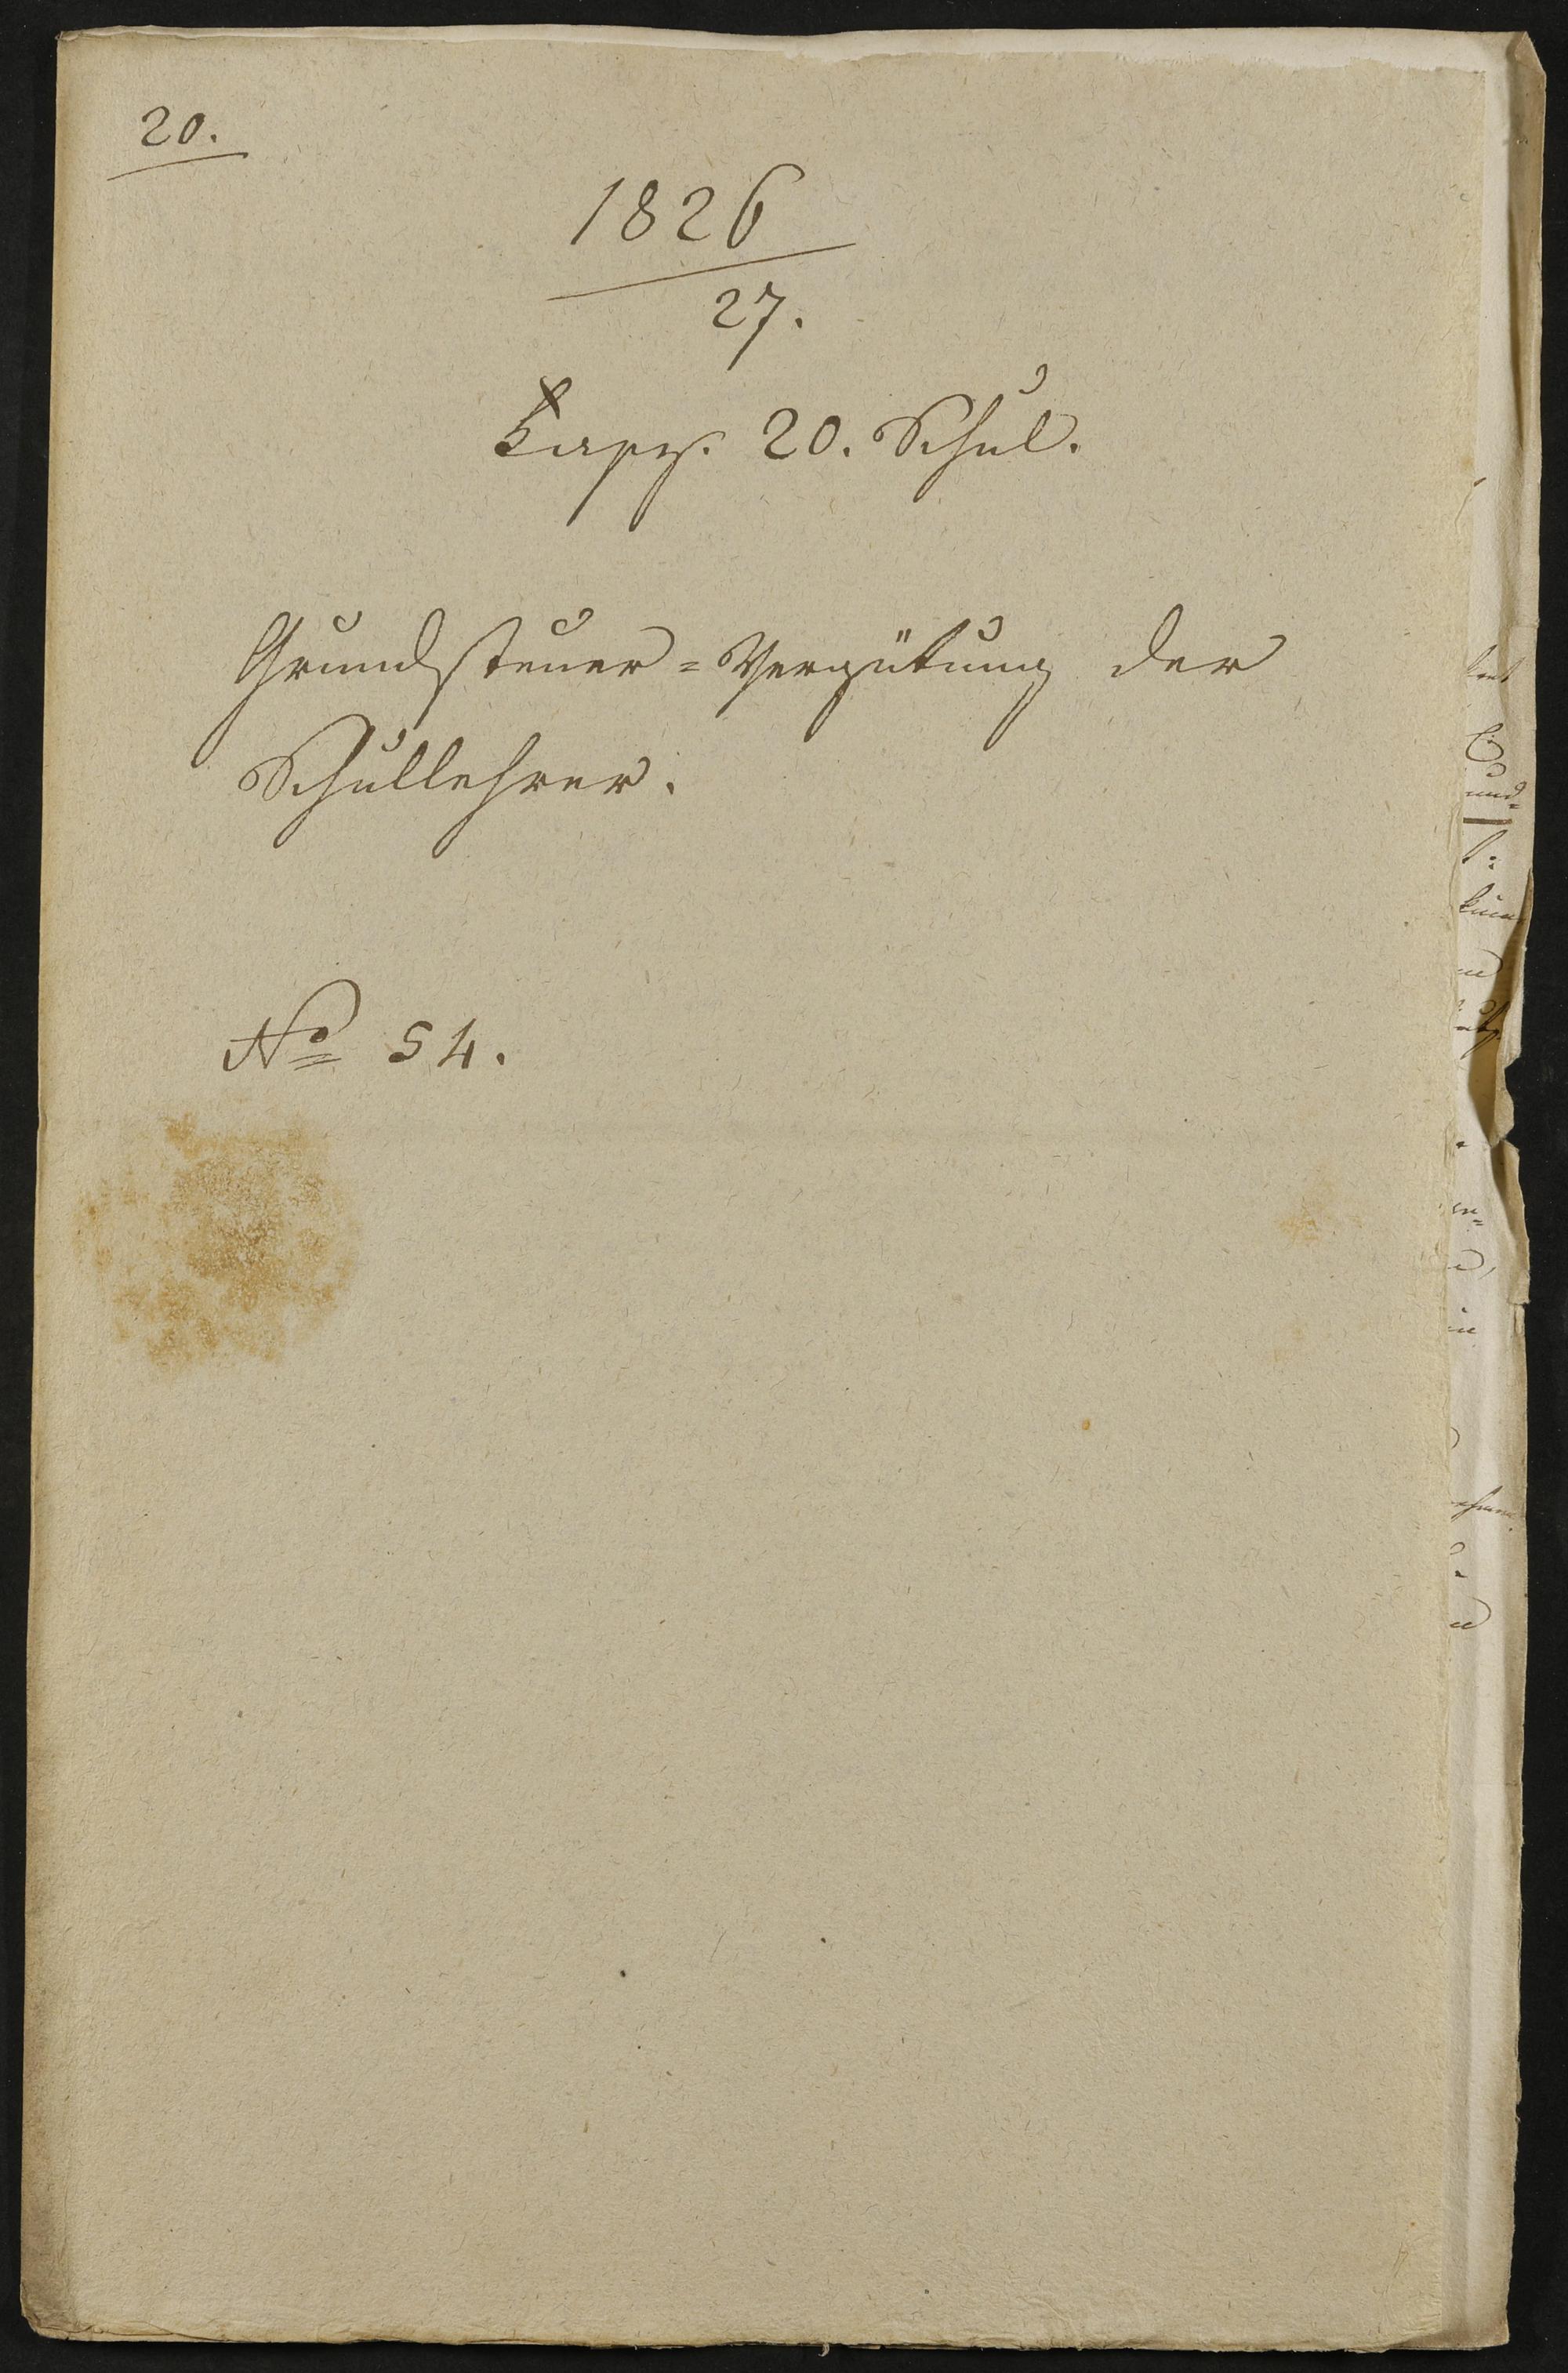 20.
1826
27.
Kaps. 20. Schul.
Grundsteuer=Vergütung der
Schullehrer.
No 54.
und=